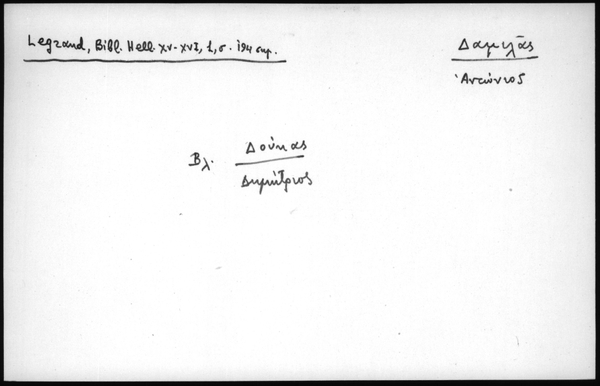 Legrand, Bibl. Hell. XV-XVI, 1, σ. 194 σημ.
Δαμιλᾶς
Ἀντώνιος
Βλ. Δούκας
Δημήτριος